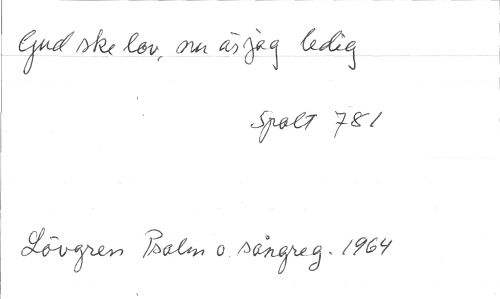 Gud ske lov, nu är jag ledig
Spalt 781
Lövgren Psalm o. sångreg. 1964